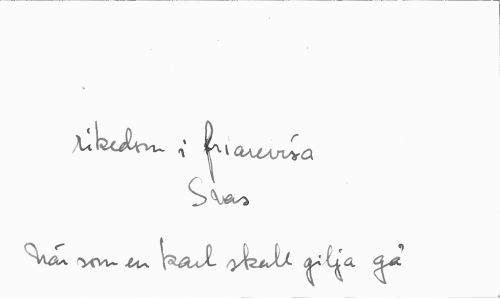 rikedom i friarevisa
Svas
När som en karl skall gilja gå